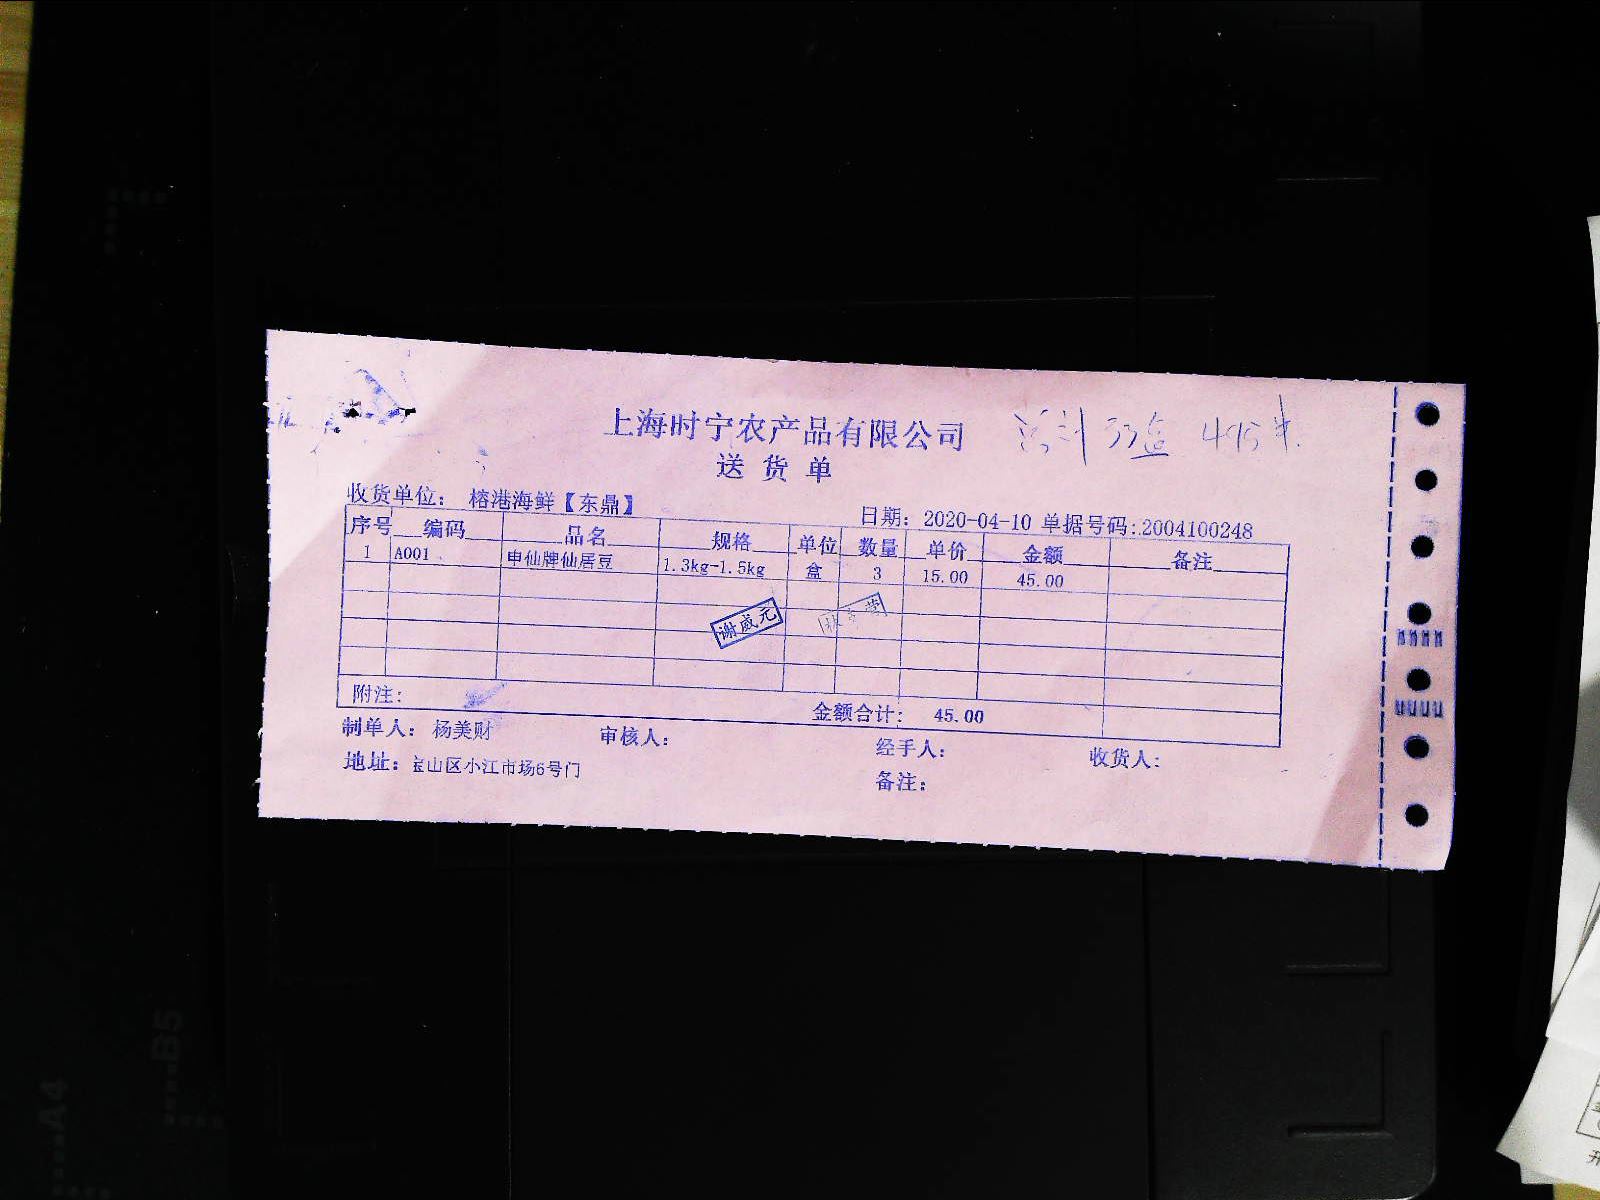 上海时宁农产品有限公司 总计 33盒 495元.
送 货 单
收货单位: 榕港海鲜【东鼎】 日期: 2020-04-10 单据号码:.2004100248
序号 编码 品名 规格 单位 数量 单价 金额 备注
1 A001 申仙牌仙居豆 1.3kg-1.5kg 盒 3 15.00 45.00
谢威元
附注: 金额合计: 45.00
制单人: 杨美财 审核人: 经手人: 收货人:
地址: 宝山区小江市场6号门 备注:
B5
A4